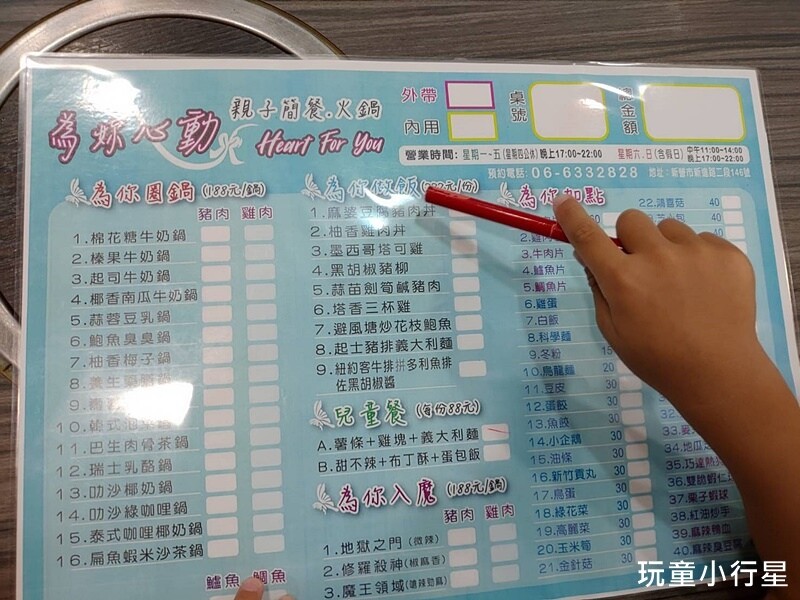 為妳心動
親子簡餐.火鍋
Heart For You
外帶
內用
桌號
總金額
營業時間: 星期一~五(星期四公休)晚上17:00~22:00 星期六.日(含假日) 中午11:00~14:00
晚上17:00~22:00
預約電話: 06-6332828 地址: 新營市新進路二段146號
為你圍鍋 (188元/鍋)
豬肉 雞肉
1.棉花糖牛奶鍋
2.榛果牛奶鍋
3.起司牛奶鍋
4.椰香南瓜牛奶鍋
5.蒜蓉豆乳鍋
6.鮑魚臭臭鍋
7.柚香梅子鍋
8.養生
9.
10.韓式泡
11.巴生肉骨茶鍋
12.瑞士乳酪鍋
13.叻沙椰奶鍋
14.叻沙綠咖哩鍋
15.泰式咖哩椰奶鍋
16.扁魚蝦米沙茶鍋
鱸魚 鯛魚
為你做飯
1.麻婆豆腐豬肉丼
2.柚香雞肉丼
3.墨西哥塔可雞
4.黑胡椒豬柳
5.蒜苗劍筍鹹豬肉
6.塔香三杯雞
7.避風塘炒花枝鮑魚
8.起士豬排義大利麵
9.紐約客牛排拼多利魚排
佐黑胡椒醬
兒童餐 (每份88元)
A.薯條+雞塊+義大利麵
B.甜不辣+布丁酥+蛋包飯
為你入魔 (188元/鍋)
豬肉 雞肉
1.地獄之門 (微辣)
2.修羅殺神 (椒麻香)
3.魔王領域 (嗆辣勁麻)
為你加點
2.雞肉
3.牛肉片
4.鱸魚片
5.鯛魚片
6.雞蛋
7.白飯
8.科學麵
9.冬粉 15
10.烏龍麵 20
11.豆皮 30
12.蛋餃 30
13.魚餃 30
14.小企鵝 30
15.油條 30
16.新竹貢丸 30
17.鳥蛋 30
18.綠花菜 30
19.高麗菜 30
20.玉米筍 30
21.金針菇 30
22.鴻喜菇 40
40
34.地瓜
35.巧達熱
36.雙脆蝦仁
37.栗子蝦球
38.紅油炒手
39.麻辣鴨血
40.麻辣臭豆腐
玩童小行星